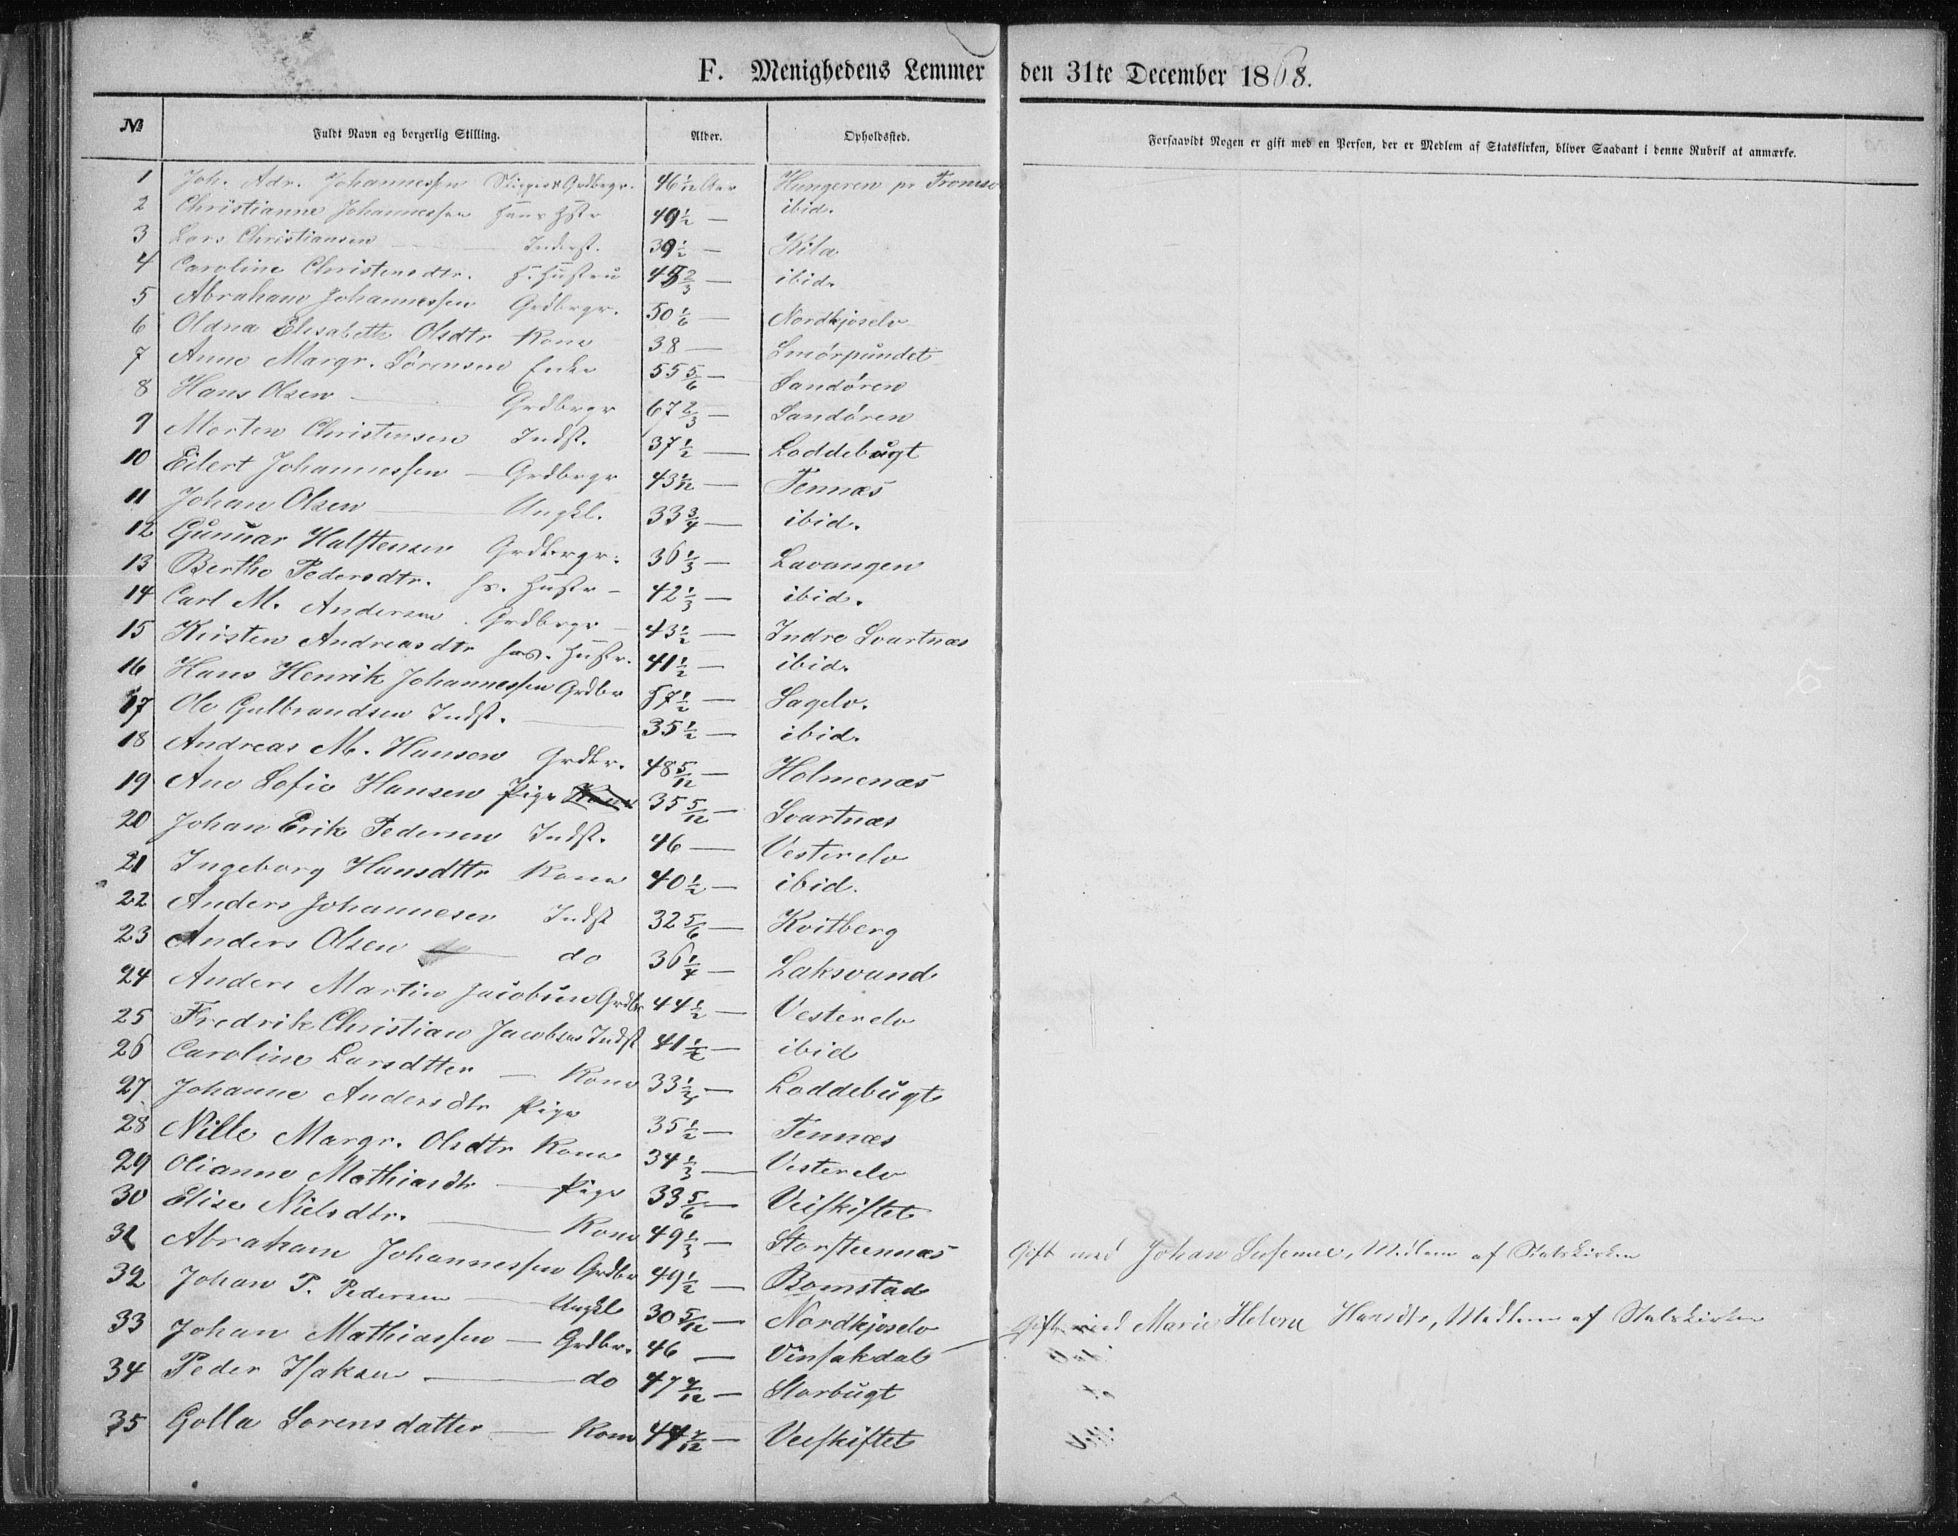 F. Menighedens Lemmer den 31te December 1868.
№ Fuldt Navn og borgerlig Stilling. Alder. Opholdssted. Forsaavidt Nogen er gift med en Person, der er Medlem af Statskirken, bliver Saadant i denne Rubrik at anmærke.
1 Joh. Adr. Johannessen Skipper & Grdbrgr. 46 1/12 Aar Hungeren pr Tromsø
2 Christianne Johannessen Hans Hstr 49 1/2 — ibid.
3 Lars Christiansen — Inderst. 39 1/2 — Kila
4 Caroline Christensdtr. H. Hustru 45 2/3 — ibid.
5 Abraham Johannessen Grdbrgr. 50 1/6 — Nordkjoselv
6 Oldna Elisabeth Olsdtr Kone 38 — Smørpundet
7 Anne Margr. Sørensen Enke 55 5/6 — Sandøren
8 Hans Olsen — Grdbrgr 67 2/3 — Sandøren
9 Morten Christensen Indst. 37 1/2 — Loddebugt
10 Eilert Johannessen — Grdbrgr 43 1/12 — Tennæs
11 Johan Olsen — Ungkl. 33 3/4 — ibid.
12 Gunnar Halstensen Grdbrgr. 36 1/3 — Lavangen
13 Berthe Pedersdtr. Hs. Hustr — 42 1/3 — ibid.
14 Carl M. Andersen Grdbrgr — 43 1/2 — Indre Svartnæs
15 Kirsten Andreasdtr Hs. Hustr. 41 1/2 — ibid.
16 Hans Henrik Johannessen Grdbr 57 1/2 — Sagelv.
17 Ole Gulbrandsen Indst. — 35 1/2 — ibid.
18 Andreas M. Hansen Grdbr. 48 5/12 — Holmenæs
19 Ane Sofie Hansen Pige 35 5/12 — Svartnæs
20 Johan Erik Pedersen Indst. 46 — Vesterelv
21 Ingeborg Hansdttr Kone 40 1/2 — ibid.
22 Anders Johannesen Indst 32 5/6 — Kvitberg
23 Anders Olsen — do 36 1/4 — Laksvand
24 Anders Martin Jacobsen Grdbr 44 1/2 — Vesterelv
25 Fredrik Christian Jacobsen Indst 41 1/2 — ibid
26 Caroline Larsdtter — Kone 33 1/2 — Loddebugt
27 Johanne Andersdtr Pige 35 1/2 — Tennæs
28 Nille Margr. Olsdtr Kone 34 1/3 — Vesterelv
29 Olianne Mathiasdtr — Pige 33 5/6 — Veiskiftet
30 Elise Nielsdtr. — Kone 49 1/3 — Storsteennæs Gift med Johan Medlem af Statskirken
31 Abraham Johannessen Grdbr 49 1/2 — Bomstad
32 Johan P. Pedersen — Ungkl 30 5/12 — Nordkjoselv
33 Johan Mathiassen — Grdbr. 46 — Vinsakdal — Gift med Marie Helene Hansdtr, Medlem af Statskirken
34 Peder Isaksen — do 47 7/12 — Storbugt
35 Golla Sorensdatter — Kone 44 7/12 — Veiskiftet